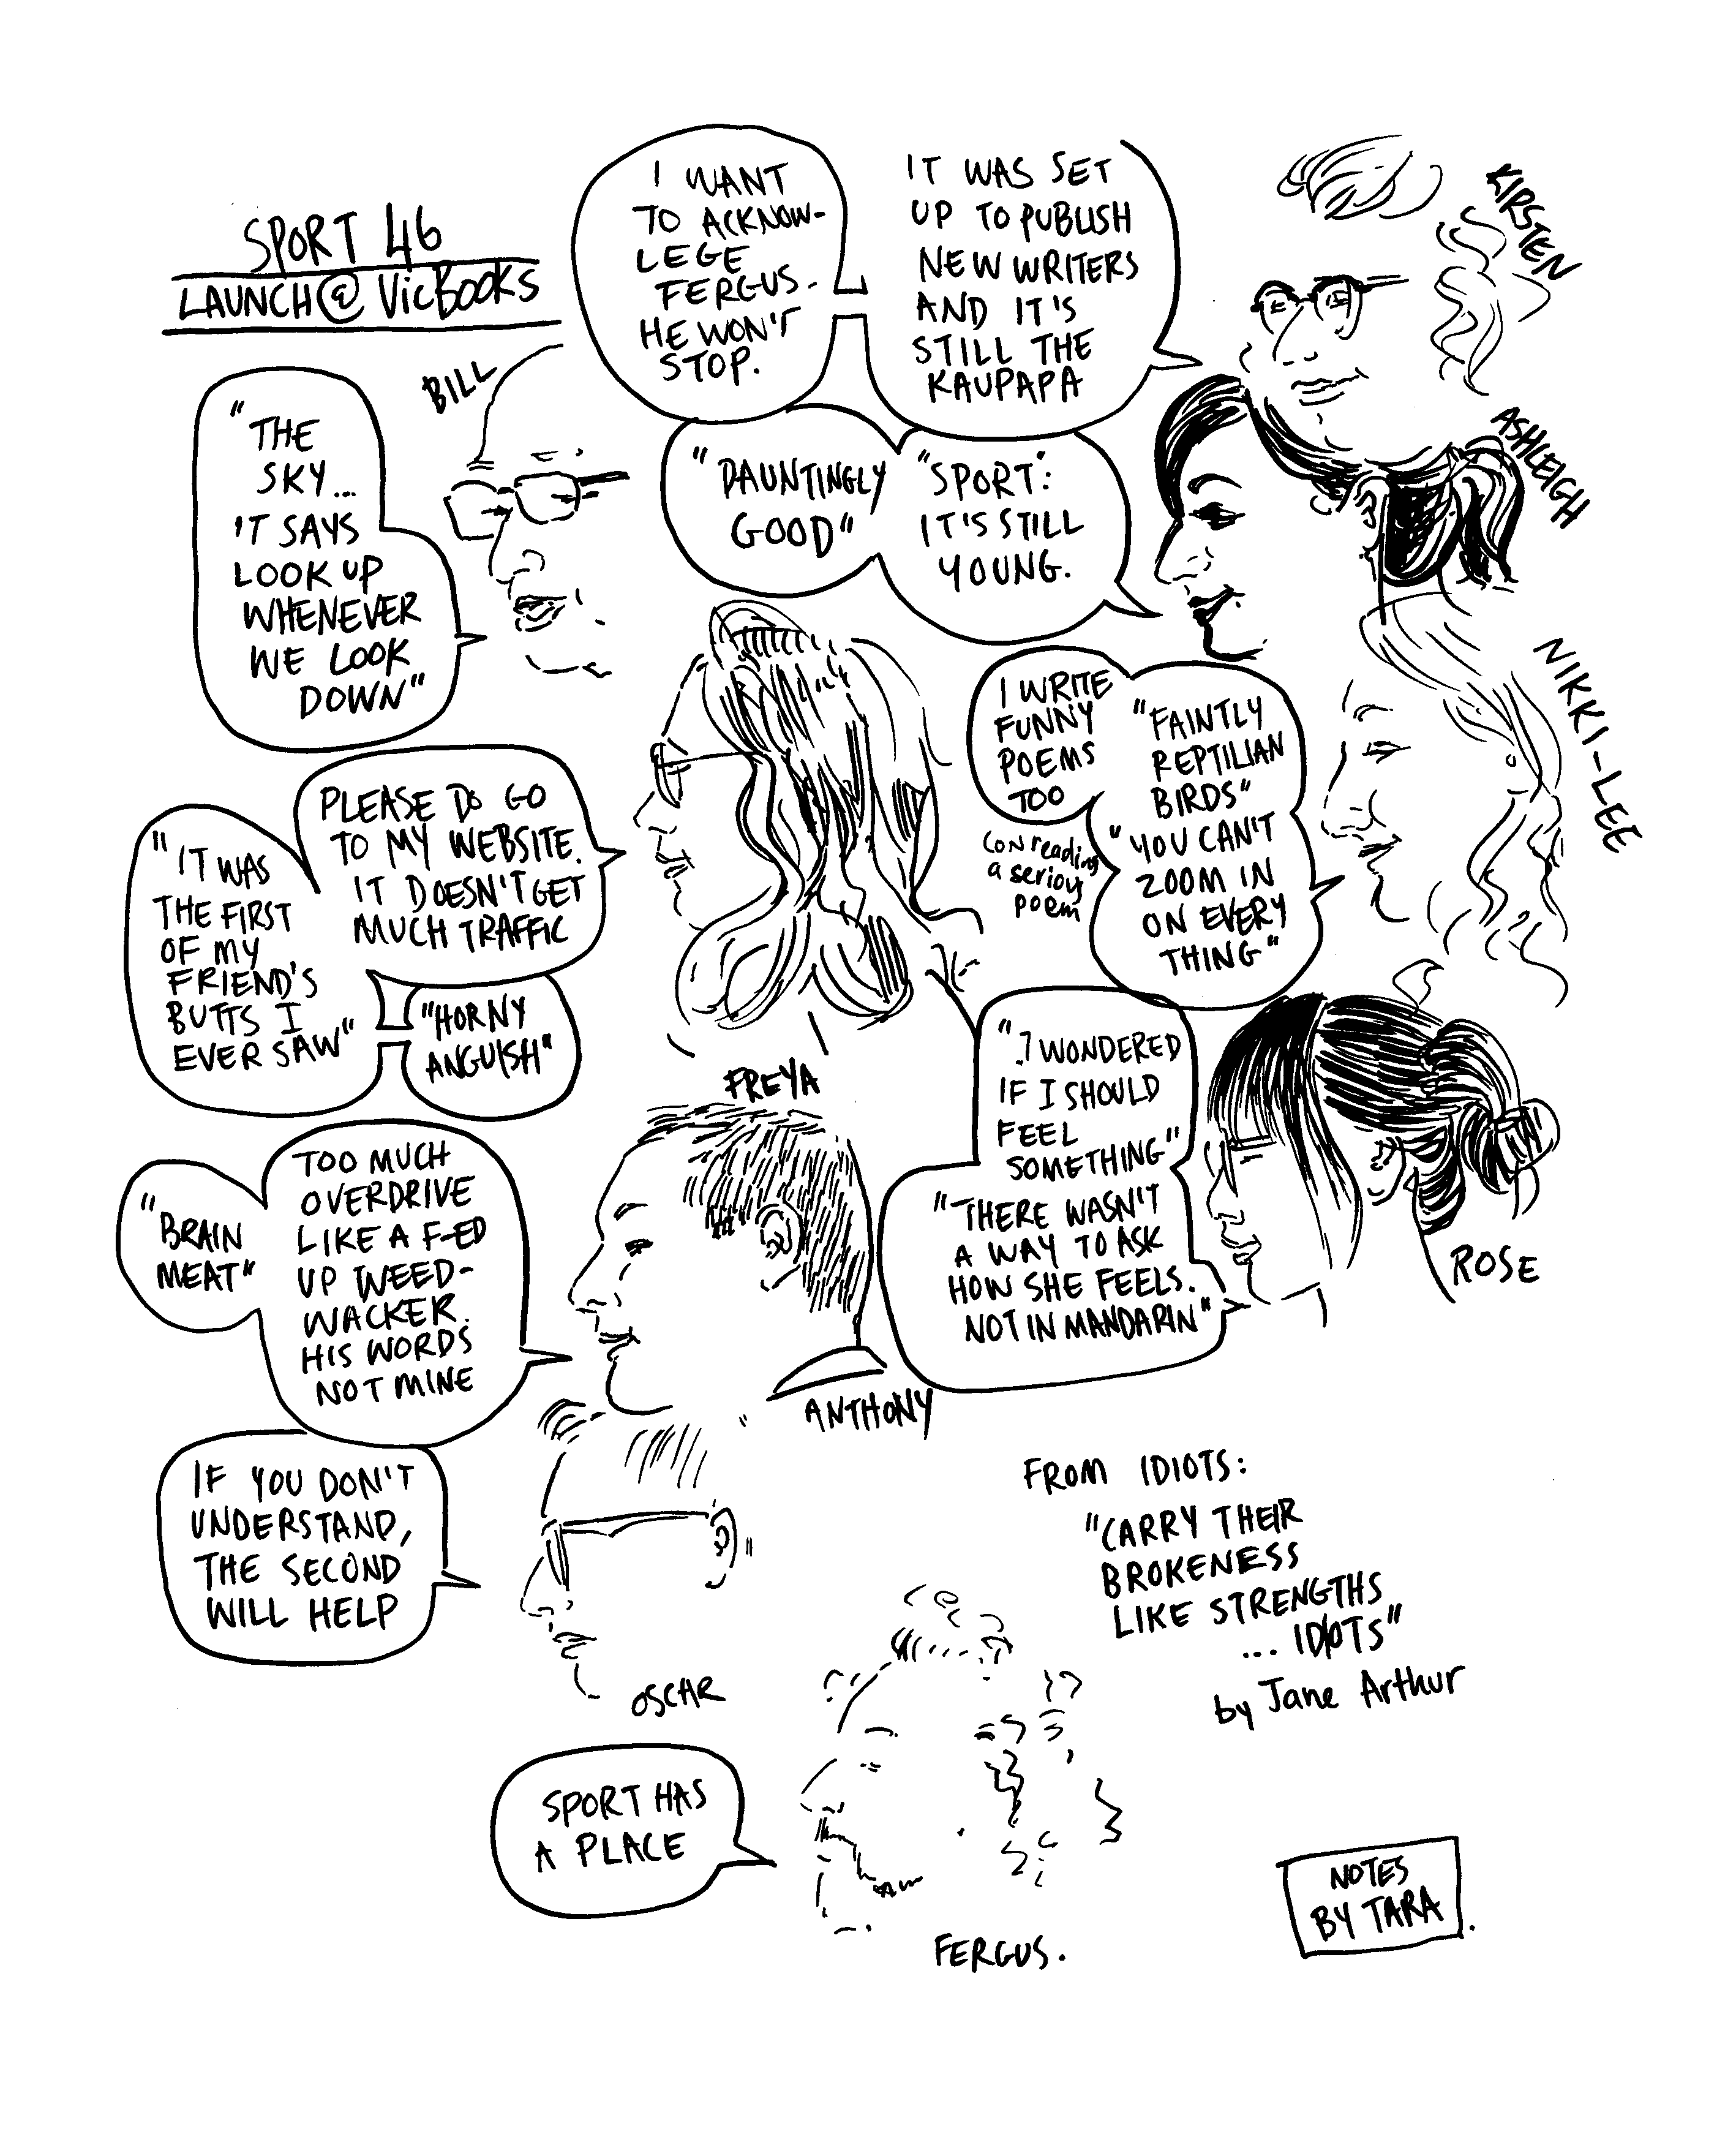 SPORT 46
LAUNCH@ VicBooks
I WANT
TO ACKNOW-
LEGE
FERGUS.
HE WON'T
STOP.
IT WAS SET
UP TO PUBLISH
NEW WRITERS
AND IT'S
STILL THE
KAUPAPA
KIRSTEN
BILL
"THE
SKY...
IT SAYS
LOOK UP
WHENEVER
WE LOOK
DOWN"
"DAUNTINGLY
GOOD"
"SPORT":
IT'S STILL
YOUNG.
ASHLEIGH
I WRITE
FUNNY
POEMS
TOO
(on reading
a serious
poem
"FAINTLY
REPTILIAN
BIRDS"
"YOU CAN'T
ZOOM IN
ON EVERY
THING"
NIKKI-LEE
PLEASE DO GO
TO MY WEBSITE.
IT DOESN'T GET
MUCH TRAFFIC
"IT WAS
THE FIRST
OF MY
FRIEND'S
BUTTS I
EVER SAW"
"HORNY
ANGUISH"
FREYA
"I WONDERED
IF I SHOULD
FEEL
SOMETHING"
"THERE WASN'T
A WAY TO ASK
HOW SHE FEELS.
NOT IN MANDARIN"
ROSE
"BRAIN
MEAT"
TOO MUCH
OVERDRIVE
LIKE A F-ED
UP WEED-
WACKER.
HIS WORDS
NOT MINE
ANTHONY
IF YOU DON'T
UNDERSTAND,
THE SECOND
WILL HELP
OSCAR
FROM IDIOTS:
"CARRY THEIR
BROKENESS
LIKE STRENGTHS
... IDIOTS"
by Jane Arthur
SPORT HAS
A PLACE
FERGUS.
NOTES
BY TARA